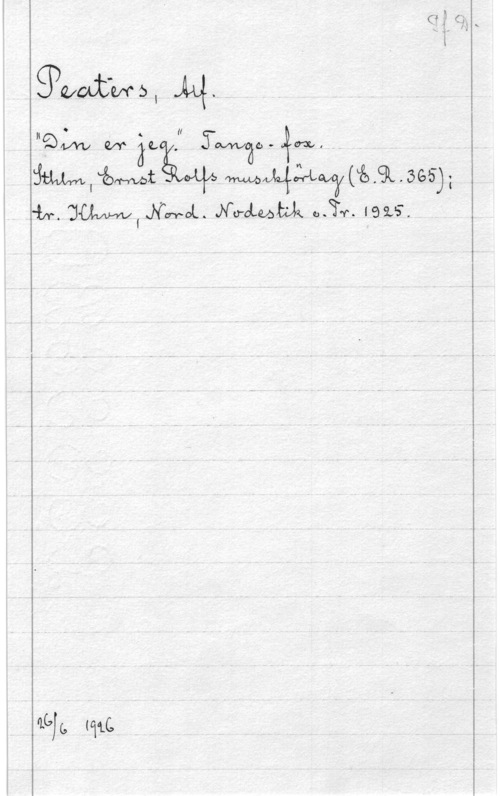 Pf Dr.
Peaters, Alf.
"Din er jeg." Tango-fox.
Sthlm, Ernst Rolfs musikförlag (E.R.365);
tr. Khvn, Nord. Nodestik o. Tr. 1925.
26/6 1926